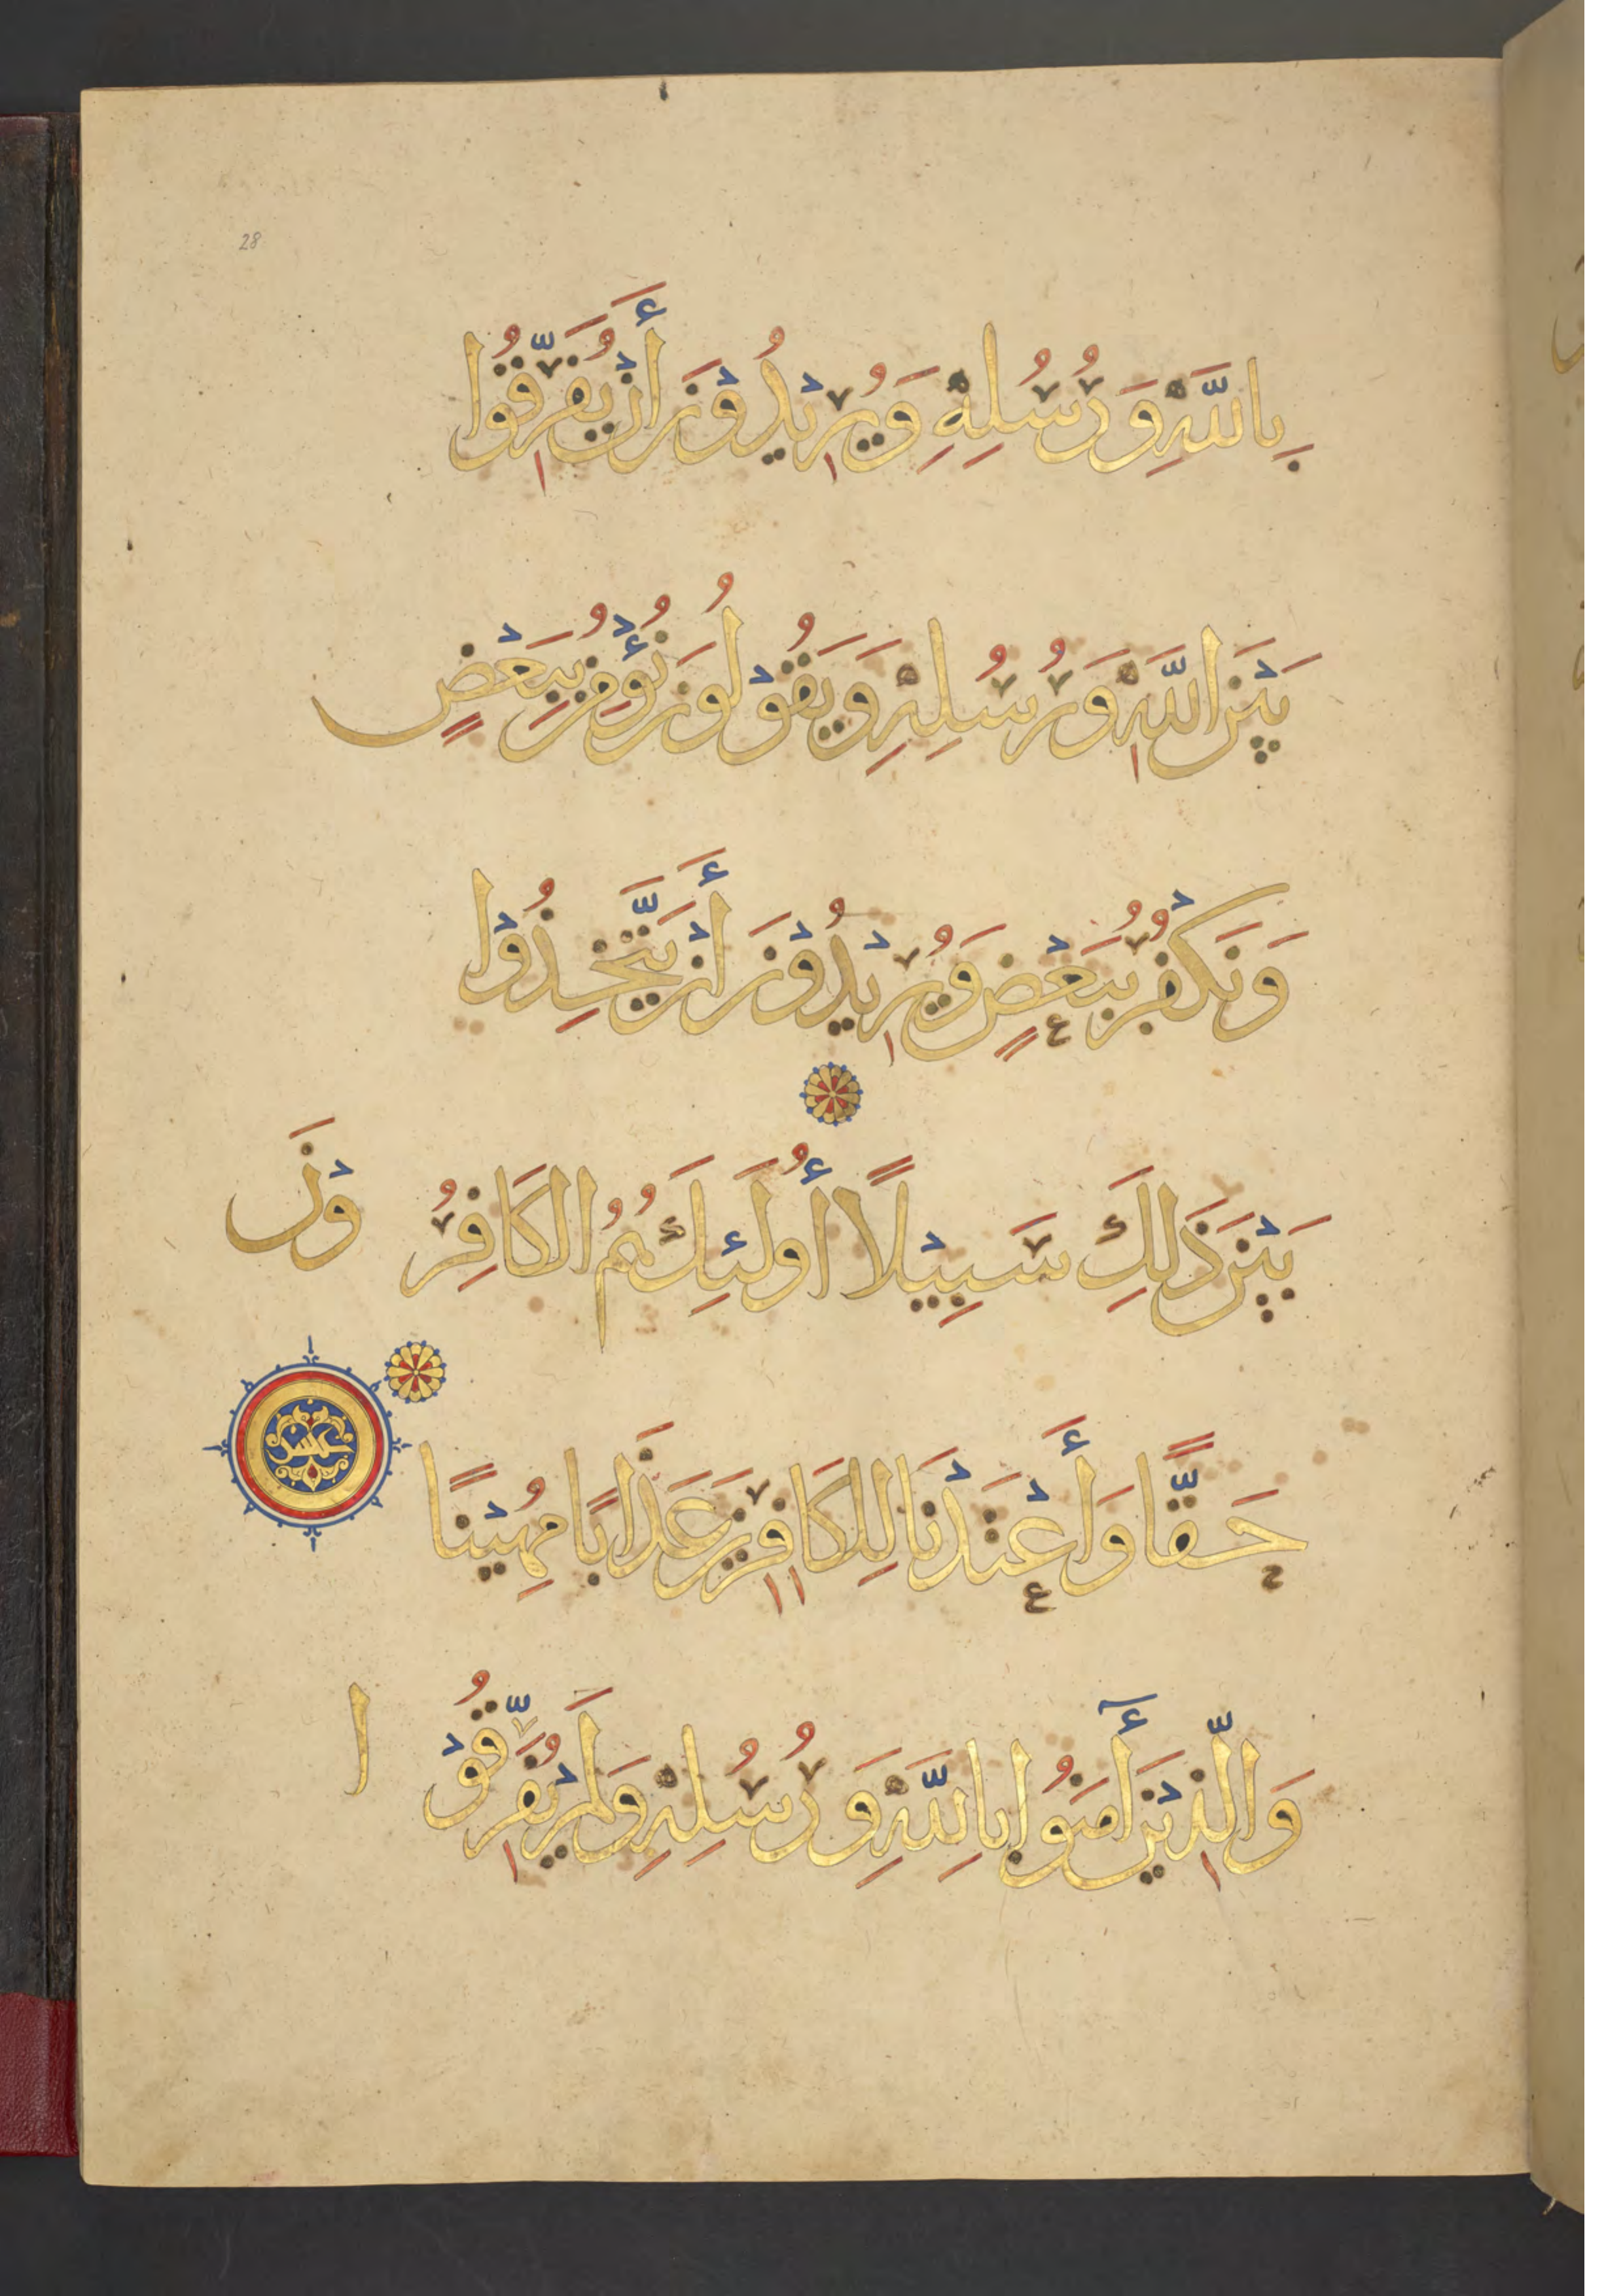 28
بِاللَّهِ وَرُسُلِهِ وَيُرِيْدُوْنَ أَنْ يُفَرِّقُوا
بَيْنَ اللَّهِ وَرُسُلِهِ وَيَقُوْلُوْنَ نُؤْمِنُ بِبَعْضٍ
وَنَكْفُرُ بِبَعْضٍ وَيُرِيْدُوْنَ أَنْ يَتَّخِذُوْا
بَيْنَ ذَلِكَ سَبِيْلًا أُولَئِكَ هُمُ الكَافِرُوْنَ
حَقًّا وَأَعْتَدْنَا لِلكَافِرِيْنَ عَذَابًا مُهِيْنًا
عشر
وَالَّذِيْنَ أٓمَنُوا بِاللَّهِ وَرُسُلِهِ وَلَمْ يُفَرِّقُوْا